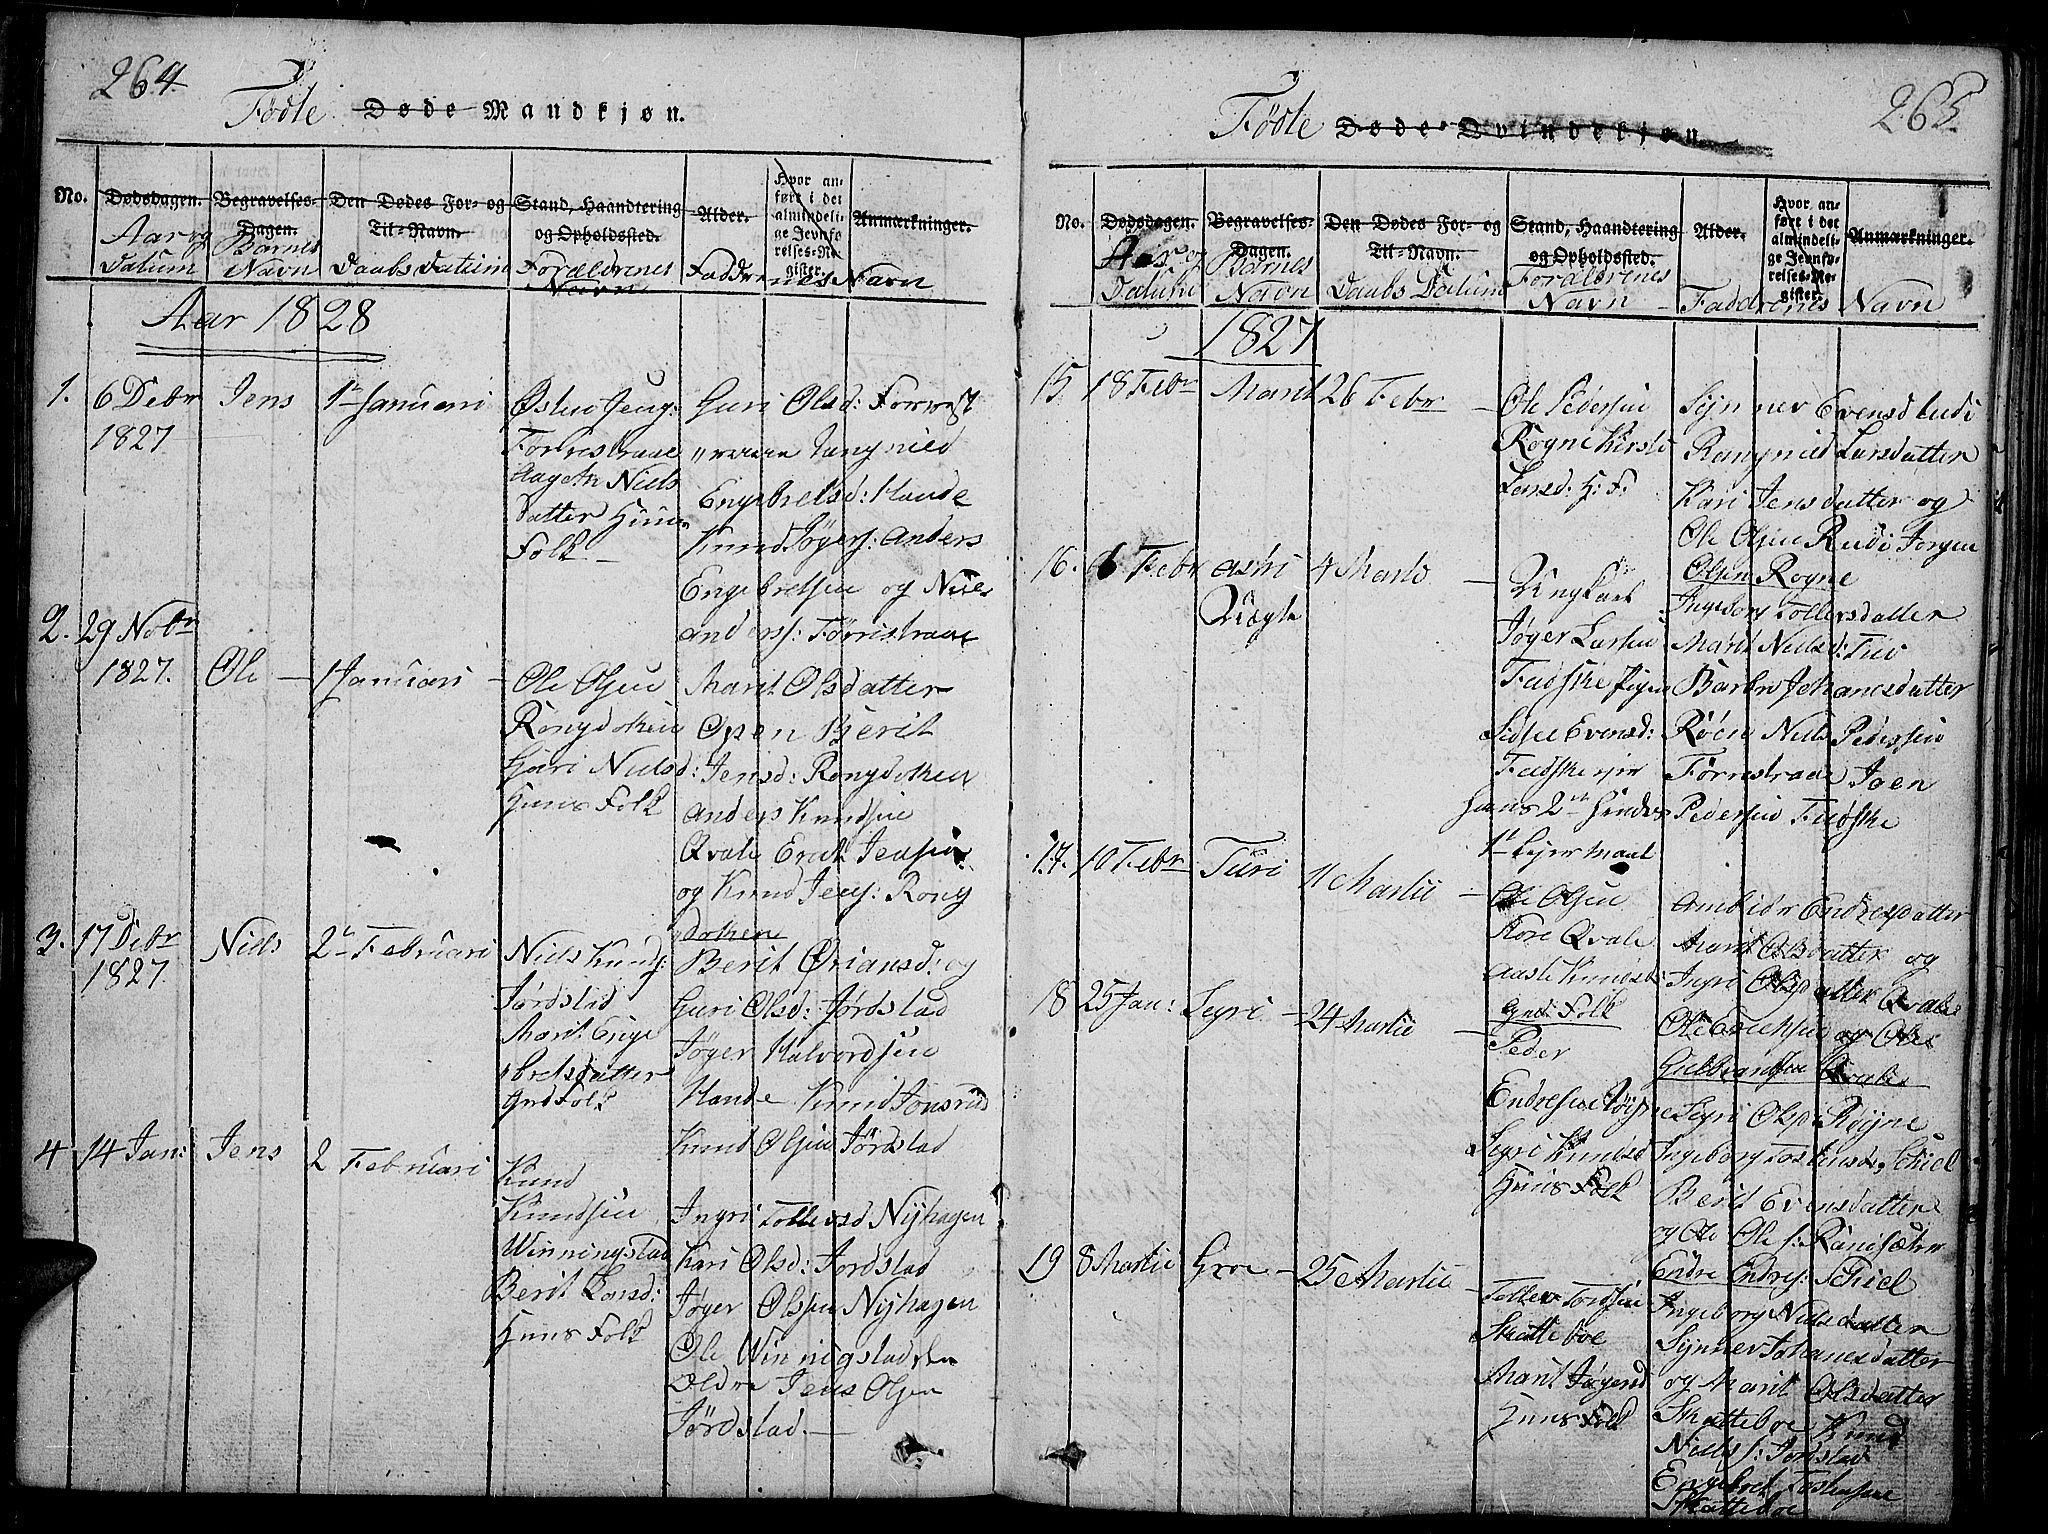 264.
Födte Døde Mandkjøn.
No.
Dødsdagen.
Aar og
Datum
Begravelses-
Dagen.
Barnes
Navn
Den Dødes For- og
Til-Navn.
Daabs Datum
Stand, Haandtering
og Opholdssted.
Forældrenes
Navn
Alder.
Hvor an-
ført i det
almindeli-
ge Jevnfø-
relses-Re-
gister.
Anmærkninger.
Faddrenes Navn
Aar 1828
1. 6 Debr
1827
Jens
1 Januari
Østen Jens:
Forrestraae
Aageth Niels
Datter Huus
Folk
Guri Olsd: Forrest
Engebretsd: Hande
Knud Jøgers: Anders
Engebretsen og Niels
Anders: Förristraae
2. 29 Nobr
1827.
Ole
1 Januari
Ole Olsen
Rongdoken
Guri Nielsd:
Huus Folk
Marit Olsdatter
Open Berit
Jensd: Rongdoken
Anders Knudsen
Qvale Erik Jensen
og Knud Jens: Rong
doken
3. 17 Debr
1827.
Niels
2 Februari
Niels Knuds:
Jördstad
Marit Enge
bretsdatter
Grd Folk
Berit Ørjansd: og
Guri Olsd: Jördstad
Jøger Halvordsen
Hande Knud Jonsrud
Knud Olsen Jördstad
4 14 Jan:
Jens
2 Februari
Knud
Knudsen
Winningstad
Berit Larsd:
Huus Folk
Ingri Tollevsd Nyhagen
Kari Olsd: Jordstad
Jøger Olsen Nyhagen
Ole Winnigstad den
Ældre Jens Olsen
Jördstad.
265.
Födte Døde Qvindekjøn
No.
Dødsdagen.
Aar og
Datum
Begravelses-
Dagen.
Barnes
Navn
Den Dødes For- og
Til-Navn.
Daabs Datum
Stand, Haandtering
og Opholdssted.
Forældrenes
Navn
Alder.
Hvor an-
ført i det
almindeli-
ge Jevnfø-
relses-Re-
gister.
Anmærkninger.
Faddrenes Navn
1827
15. 18 Febr
Marit
26 Febr
Ole Pedersen
Rogne Kirsti
Larsd. H: F:
Synnev Evensd Rudi
Rangnied Larsdatter
Kari Jensdatter og
Ole Olsen Rudi Jørgen
Olsen Rogne
16. 6 Febr
4 Marts
Ungkarl
Jøger Larsen
Fadske Pigen
Sidsel Evensd:
Fadske
Hans 2 Hendes
1 Leiermaal
Ingeborg Tollevsdatter
Marit Nielsd:
Barbro Johanesdatter
Röen Niels Pedersen
Förrestraae Joen
Pedersen Fadske
17. 10 Febr
Turi
11 Martii
Ole Olsen
Kore Qvale
Aaste Knudsd:
Grd: Folk
Ambiør Endresdatter
Marit Olsdatter og
Ingri Olsdatter Qvale
Ole Erichsen og Ole
Gulbrandsen Qvale
18 25 Jan:
Segri
24 Martii
Peder
Endresen
Segri Knudsd
Huus Folk
Segri Olsd:
Ingeborg Tostensd: Schiel
Berit Evensdatter
og Ole Ole s: Ranisæter
Endre Endres: Schiel
19 8 Martii
Groe
25 Martii
Tollev Tordsen
Skatteboe
Marit Jøgersd
Huus Folk
Ingeborg Nielsdatter
Synnev Johanesdatter
og Marit Olsdatter
Skatteboe Knud
Niels s: Jordstad
Engebret Tostensen
Skatteboe